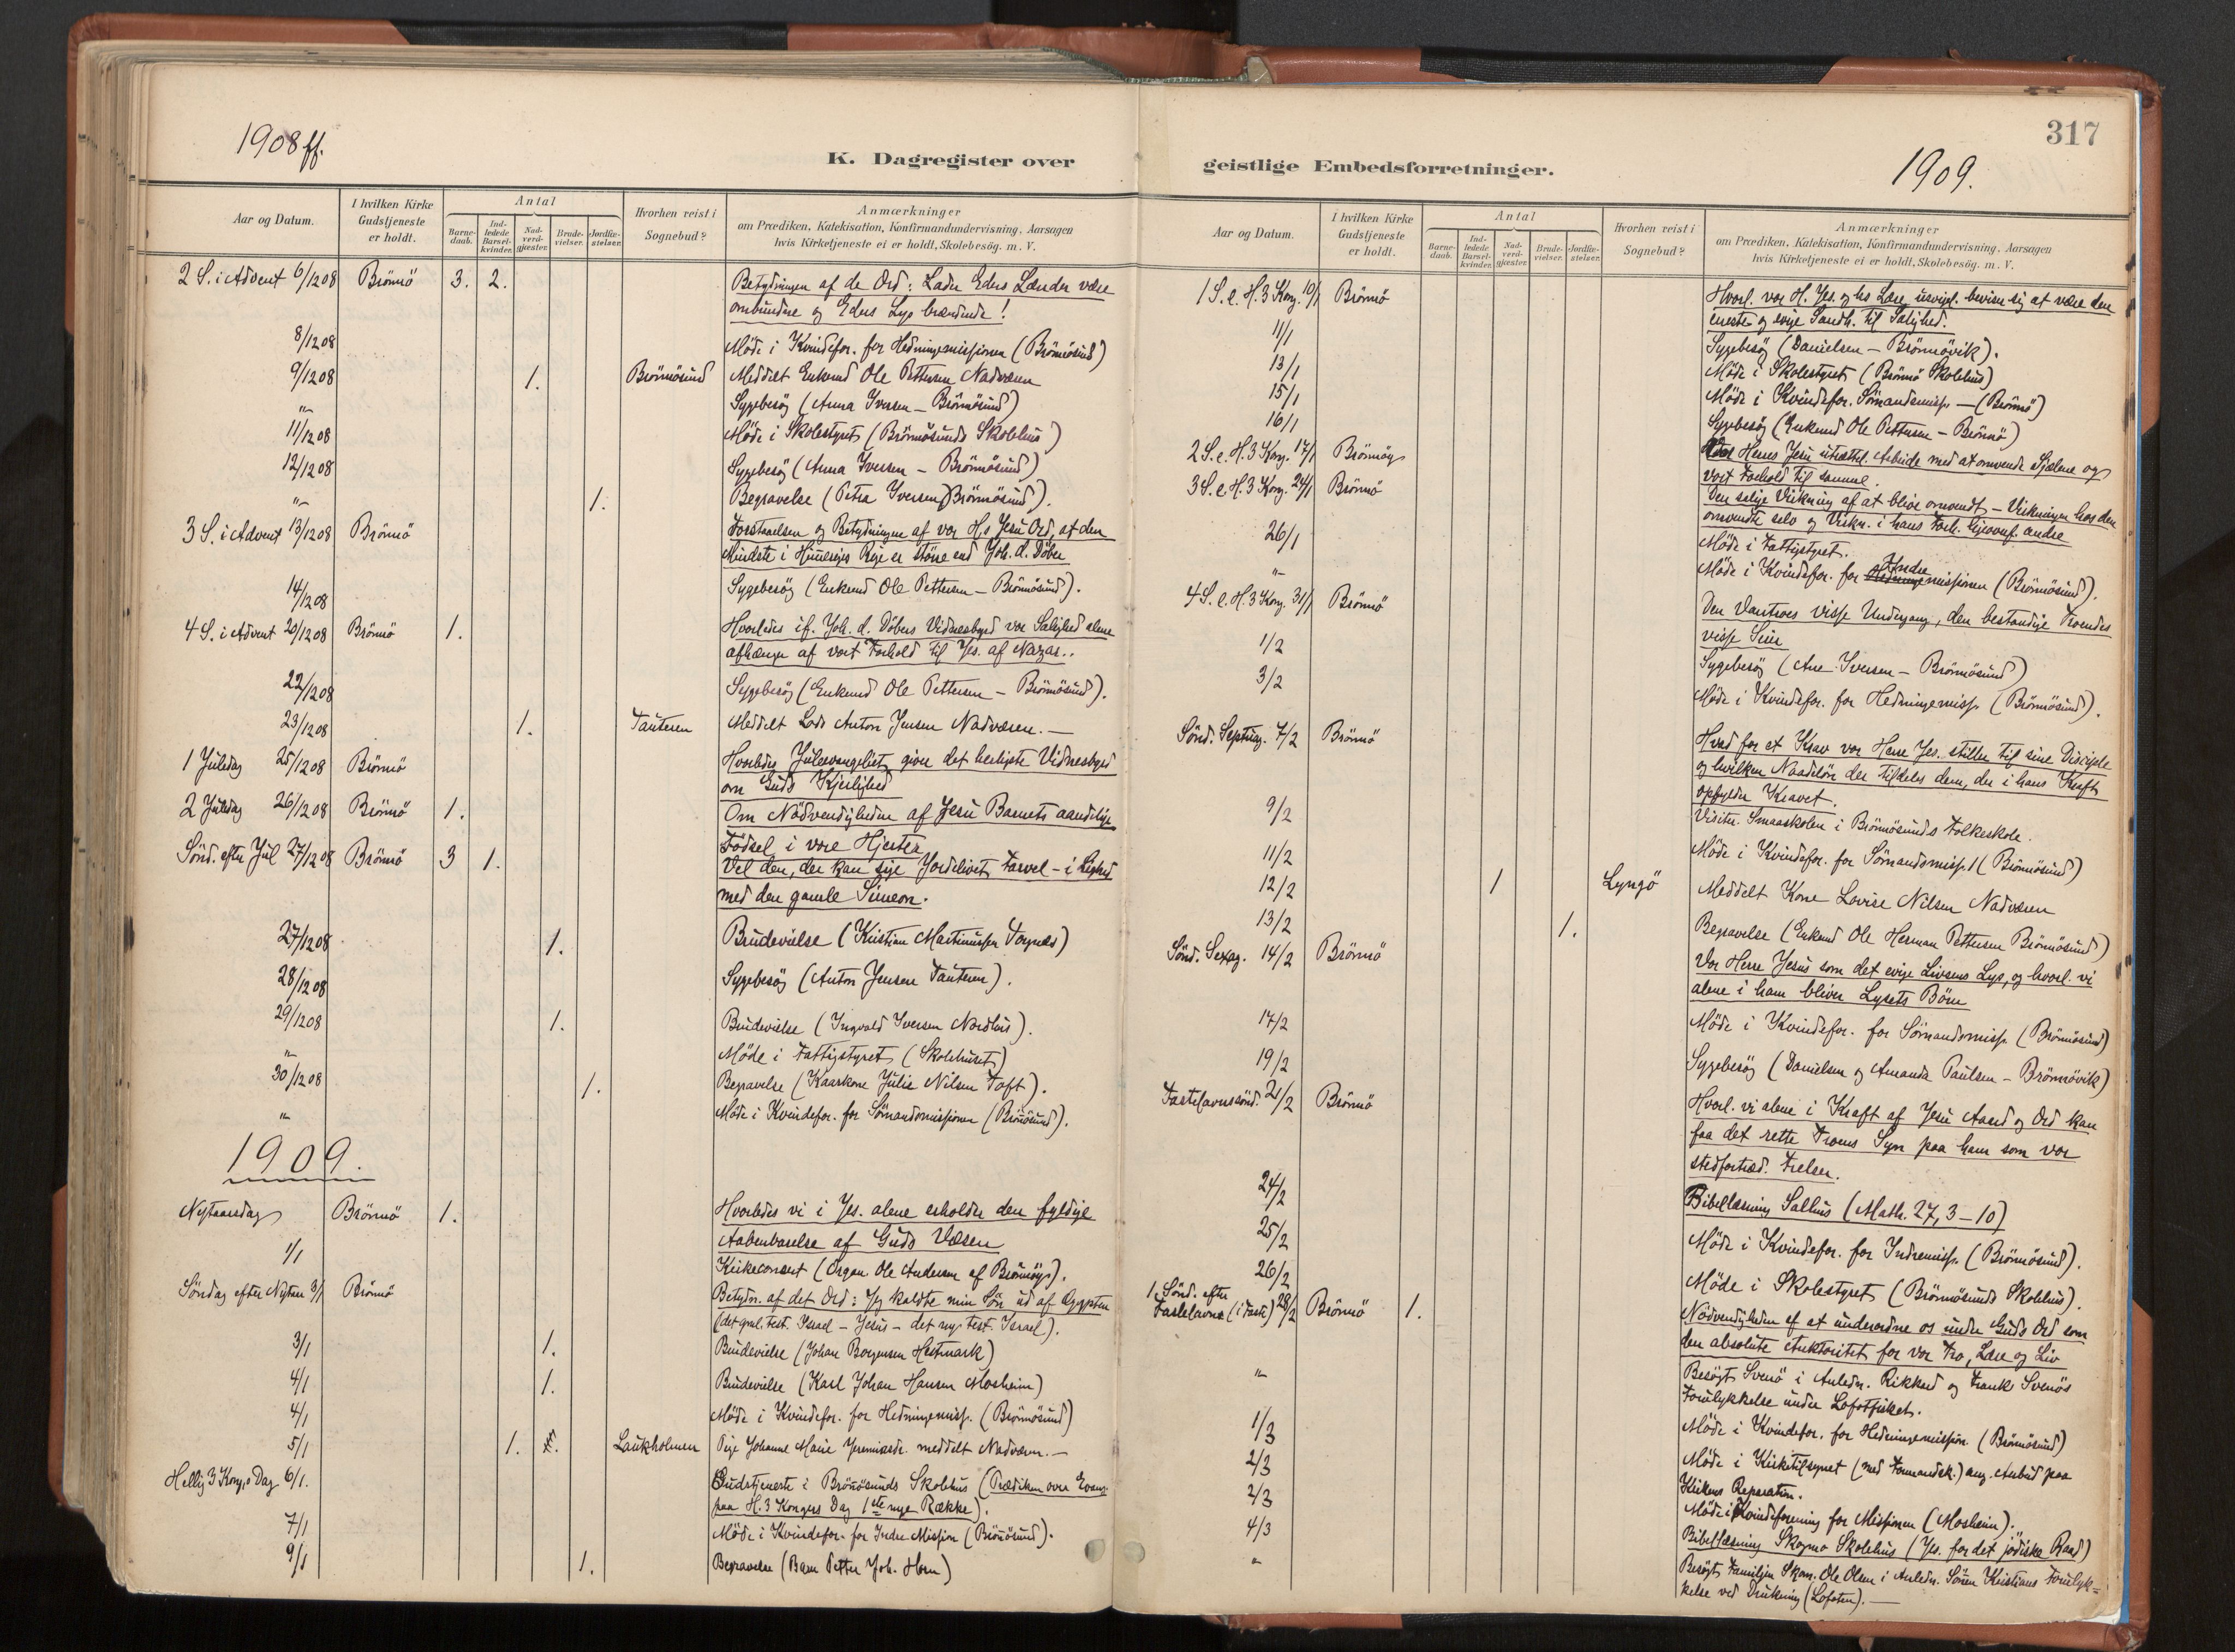 1908 ff.
K. Dagregister over
Aar og Datum.
I hvilken Kirke Gudstjeneste er holdt.
Antal
Barne-daab.
Ind-ledede Barsel-kvinder.
Nad-verd-gjester.
Brude-vielser.
Jordfæ-stelser.
Hvorhen reist i Sognebud?
Anmærkninger
om Prædiken, Katekisation, Konfirmandundervisning, Aarsagen
hvis Kirketjeneste ei er holdt, Skolebesög. m. V.
2 S. i Advent 6/12 08 Brönnö 3. 2. Betydningen af de Ord: Lader Eders Lænder være
ombundne og Eders Lys brændende!
8/12 08 Möde i Kvindefor. for Hedningemissionen (Brönnösund)
9/12 08 1. Brönnösund Meddelt Enkemd Ole Pettersen Nadværen
"– Sygebesög (Anna Iversen – Brönnösund)
11/12 08 Möde i Skolestyret (Brönnösunds Skolehus)
12/12 08 Sygebesög (Anna Iversen – Brönnösund)
"– 1. Begravelse (Petra Iversen, Brönnösund).
3 S. i Advent 13/12 08 Brönnö Forstaaelsen og Betydningen af vor H.s Jesu Ord, at den
Mindste i Himmeriges Rige er större end Joh. d. Döber
14/12 08 Sygebesög (Enkemd Ole Pettersen – Brönnösund).
4 S. i Advent 20/12 08 Brönnö 1. Hvorledes if. Joh. d. Döbers Vidnesbyrd vor Salighed alene
afhænger af vort Forhold til Jes. af Nazar..
22/12 08 Sygebesög (Enkemd Ole Pettersen – Brönnösund).
23/12 08 1. Tauteren Meddelt Lods Anton Jensen Nadværen. –
1 Juledag 25/12 08 Brönnö Hvorledes Juleevangeliet giver det herligste Vidnesbyrd
om Guds Kjerlighed
2 Juledag 26/12 08 Brönnö 1. Om Nödvendigheden af Jesu Barnets aandelige
Födsel i vore Hjerter
Sönd. efter Jul 27/12 08 Brönnö 3 1. Vel den, der kan sige Jordelivet Farvel – i Lighed
med den gamle Simeon.
27/12 08 1. Brudevielse (Kristian Martinussen Torgnes)
28/12 08 Sygebesög (Anton Jensen Tauteren).
29/12 08 1. Brudevielse (Ingvald Iversen Nordhus).
"– Möde i Fattigstyret (Skolehuset)
30/12 08 1. Begravelse (Kaarkone Julie Nilsen Toft).
"– Möde i Kvindefor. for Sömandsmissionen (Brönnösund).
1909.
Nytaarsdag Brönnö 1. Hvorledes vi i Jes. alene erholder den fyldige
Aabenbarelse af Guds Væsen
1/1 Kirkeconcert (Organ. Ole Andersen af Brönnöys).
Söndag efter Nytaar 3/1 Brönnö Betydn. af det Ord: Jeg kaldte min Sön ud af Ægypten
(det gml. test. Israel – Jesus – det nye test. Israel).
3/1 1. Brudevielse (Johan Borgersen Hestmark)
4/1 1. Brudevielse (Karl Johan Hansen Mosheim)
4/1 Möde i Kvindefor. for Hedningemiss. (Brönnösund)
5/1 1. Laukholmen Pige Johanne Marie Jeremiasdr. meddelt Nadværen. –
Hellig 3 Kong.s Dag 6/1. Gudstjeneste i Brönnösunds Skolehus (Prædiken over Evang.
paa H. 3 Kongers Dag 1ste nye Række).
7/1 Möde i Kvindefor. for Indre Mission (Brönnösund).
9/1 1. Begravelse (Barn Petter Joh. Horn)
317
geistlige Embedsforretninger.
1909.
Aar og Datum.
I hvilken Kirke Gudstjeneste er holdt.
Antal
Barne-daab.
Ind-ledede Barsel-kvinder.
Nad-verd-gjester.
Brude-vielser.
Jordfæ-stelser.
Hvorhen reist i Sognebud?
Anmærkninger
om Prædiken, Katekisation, Konfirmandundervisning, Aarsagen
hvis Kirketjeneste ei er holdt, Skolebesög. m. V.
1 S. e. H. 3 Kong. 10/1 Brönnö Hvorl. vor H. Jes. og hs Lære beviser sig at være den
eneste og evige Sandh. til Salighed.
11/1 Sygebesög (Danielsen – Brönnövik).
13/1 Möde i Skolestyret (Brönnö Skolehus)
15/1 Möde i Kvindefor. Sömandsmiss. – (Brönnö)
16/1 Sygebesög (Enkemd Ole Pettersen – Brönnö)
2 S. e. H. 3 Kong. 17/1 Brönnöys Herres Jesu utrættel. Arbeide med at omvende Sjælene og
vort Forhold til samme.
3 S. e. H. 3 Kong. 24/1 Brönnö Den salige Virkning af at blive omvendt – Virkningen hos den
omvendte selv og Virkn. i hans Forh. ligeoverf. andre
26/1 Möde i Fattigstyret.
"– Möde i Kvindefor. for Indre missionen (Brönnösund).
4 S. e. H. 3 Kong. 31/1 Brönnö Den Vantroes visse Undergang, den bestandige Troendes
visse Seier
1/2 Sygebesög (Ane Iversen – Brönnösund)
3/2 Möde i Kvindefor. for Hedningemiss. (Brönnösund).
Sönd. Septuag. 7/2 Brönnö Hvad for et Krav vor Herre Jes. stiller til sine Disciple
og hvilken Naadelön der tildeles dem, der i hans Kraft
opfylder Kravet.
9/2 Visiter. Smaaskolen i Brönnösunds Folkeskole.
11/2 Möde i Kvindefor. for Sömandsmiss. (Brönnösund)
12/2 1 Lyngö Meddelt Kone Lovise Nilsen Nadværen
13/2 1. Begravelse (Enkemd Ole Herman Pettersen Brönnösund)
Sönd. Sexag. 14/2 Brönnö Vor Herre Jesus som det evige Livsens Lys, og hvorl. vi
alene i ham bliver Lysets Börn
17/2 Möde i Kvindefor. for Sömandsmiss. (Brönnösund)
19/2 Sygebesög (Danielsen og Amanda Paulsen – Brönnövik)
Fastelavnssönd. 21/2 Brönnö Hvorl. vi alene i Kraft af Jesu Aand og Ord kan
faa det rette Troens Syn paa ham som vor
stedfortræd. Frelser.
24/2 Bibellæsning Salhus (Math. 27, 3–10)
25/2 Möde i Kvindefor. for Indremiss. (Brönnösund).
26/2 Möde i Skolestyret (Brönnösunds Skolehus).
1. Sönd. efter
Fastelavns (i Faste) 28/2 Brönnö 1. Nödvendigheden af at underordne os under Guds Ord som
den absolute Auktoritet for vor Tro, Lære og Liv
"– Besögt Svenö i Anledn. Rikkard og Frank Svenös
Forulykkelse under Lofotfisket.
1/3 Möde i Kvindefor. for Hedningemission (Brönnösund)
2/3 Möde i Kirketilsynet (med Formandsk.) ang. Anbud paa
Kirkens Reparation.
2/3 Möde i Kvindeforening for Missionen (Mosheim).
4/3 Bibellæsning Skogmo Skolehus (Jes. for det jödiske Raad)
"– Besögt Familjen Skom. Ole Olsen i Anledn. Sönnen Kristians Forulyk=
kelse ved Drukning (Lofoten). –